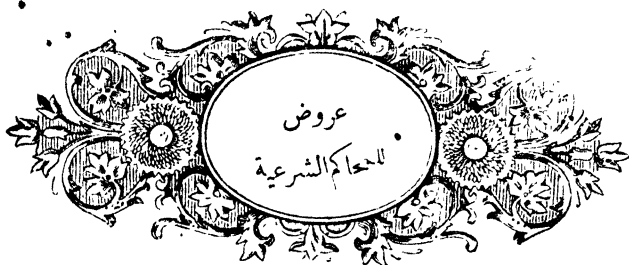 عروض
للمحاكم الشرعية